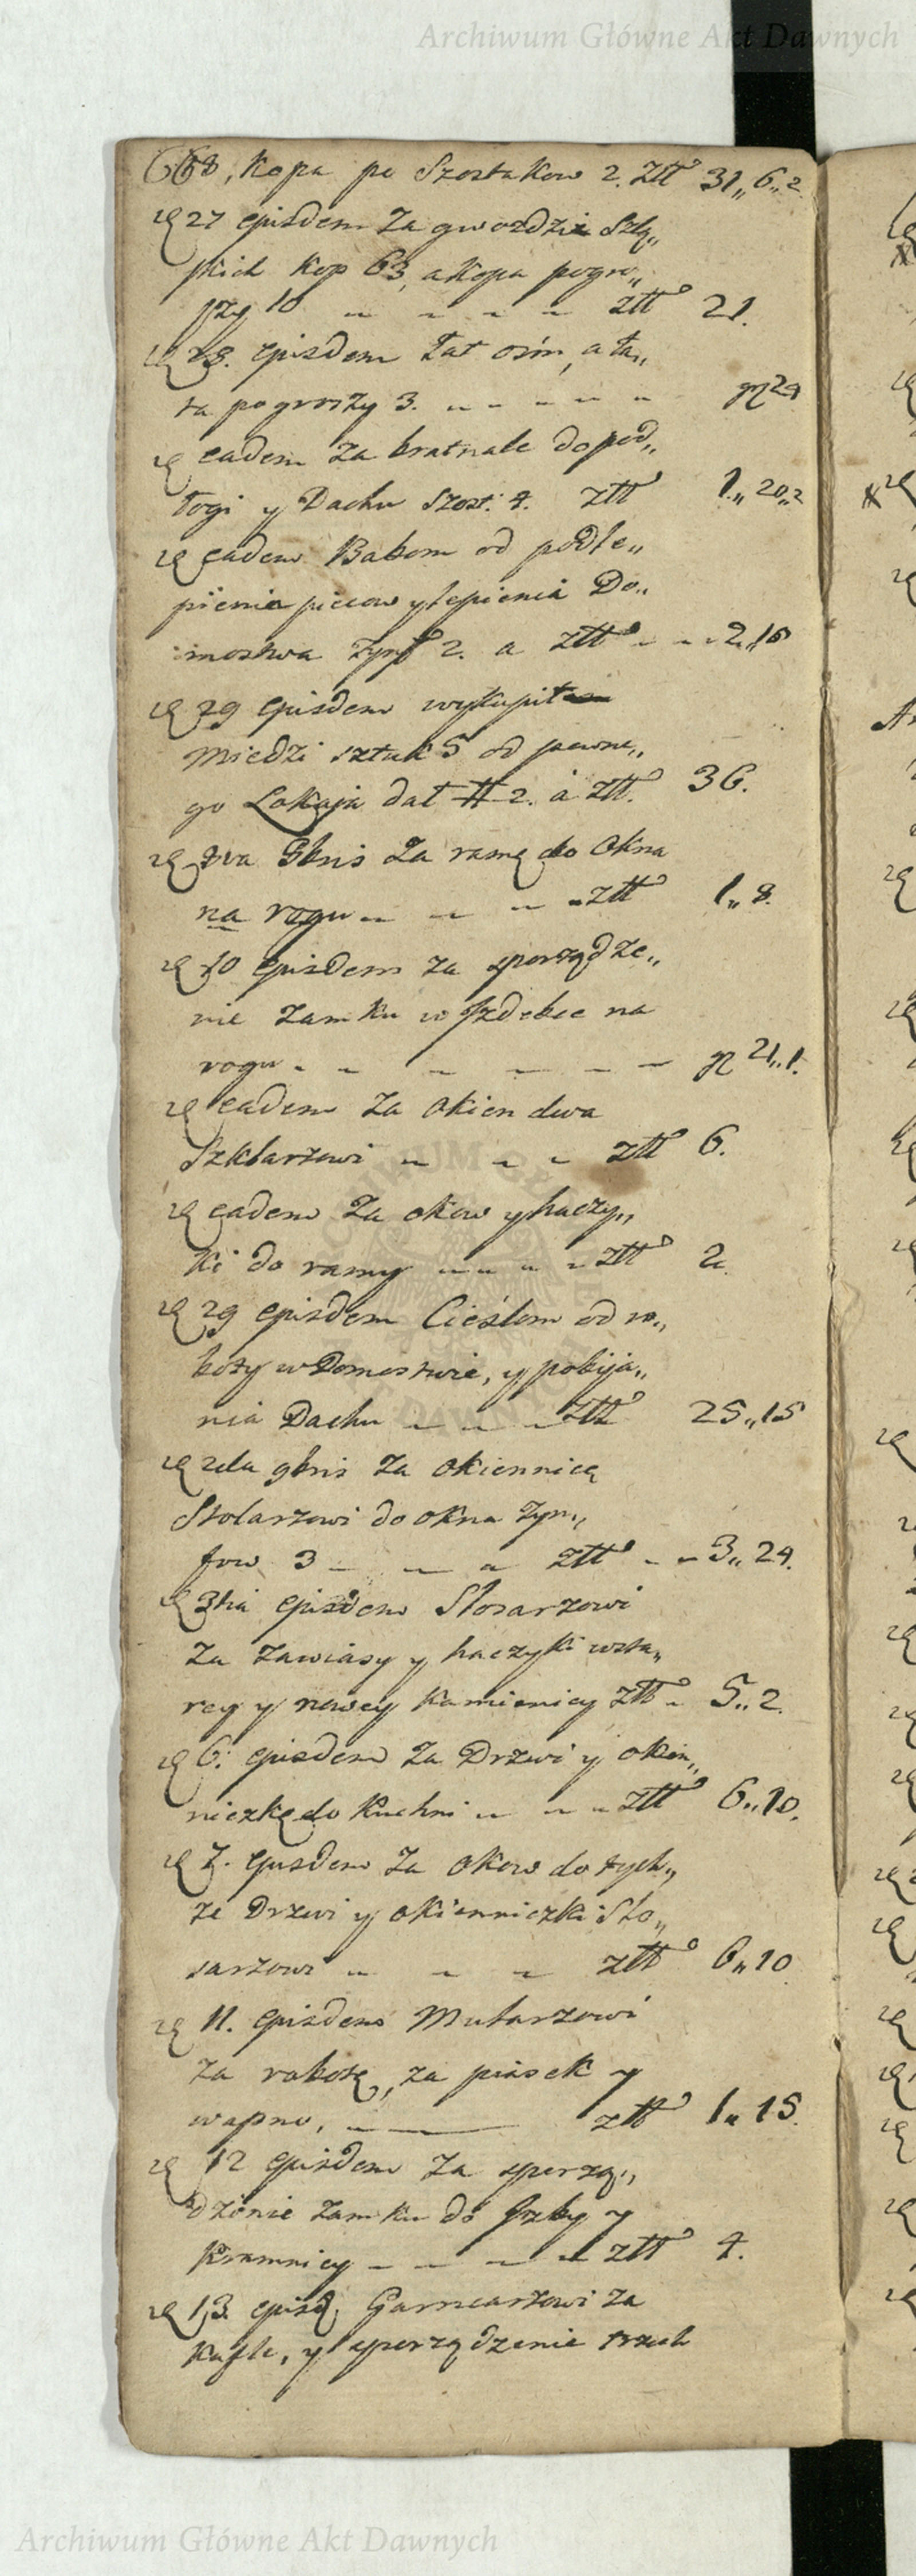 Archiwum Główne Akt Dawnych
668, kopa po Szostakow 2. Złł 31„6„2
27 ejusdem Za gwozdzi Szlą„
skich kop 63, a kopa po gro„
szy 10 - - - - złł 21.
28. ejusdem Łat ośm, a ła„
ta po groszy 3. - - - - - gr 24
eadem Za bratnale do pod„
łogi y Dachu Szost: 4. złł 1„20„2
eadem Babom od podle„
pienia piecow y lepienia Do„
mostwa Tynf 2. a złł - - 2„16
29 ejusdem wykupił
Miedzi sztuk 5 od pewne„
go Lokaja dał # 2. á złł. 36.
Za ramę do Okna
na rogu - - - złł 1„8.
10 ejusdem za sporządze„
nie Zamku w Izdebce na
rogu - - - - - - gr 21„1.
eadem Za Okien dwa
Szklarzowi - - - złł 6.
eadem Za okow y haczy„
ki do ramy - - - - złł 2.
29 ejusdem Cieślom od ro„
boty w Domostwie, y pobija„
nia Dachu - - - złł 25„15
2da 9bris Za Okiennicę
Stolarzowi do okna Tyn„
fow 3 - - - złł - - 3„24.
3tia ejusdem Slosarzowi
Za Zawiasy y haczyki w sta„
rey y nowey Kamienicy złł - 5„2.
6. ejusdem Za Drzwi y okien„
niczkę do Kuchni - - - złł 6„10.
7. ejusdem Za Okow do tych„
ze Drzwi y okienniczki Slo„
sarzowi - - - złł 6„10
11. ejusdem Mularzowi
Za robotę, za piasek y
wapno, - złł 1„15.
12 ejusdem Za sporzą„
dzenie Zamku do Izby y
Kramnicy - - - - złł 4.
13. ejusd. Garncarzowi Za
Kafle, y sporządzenie trzech
Archiwum Główne Akt Dawnych